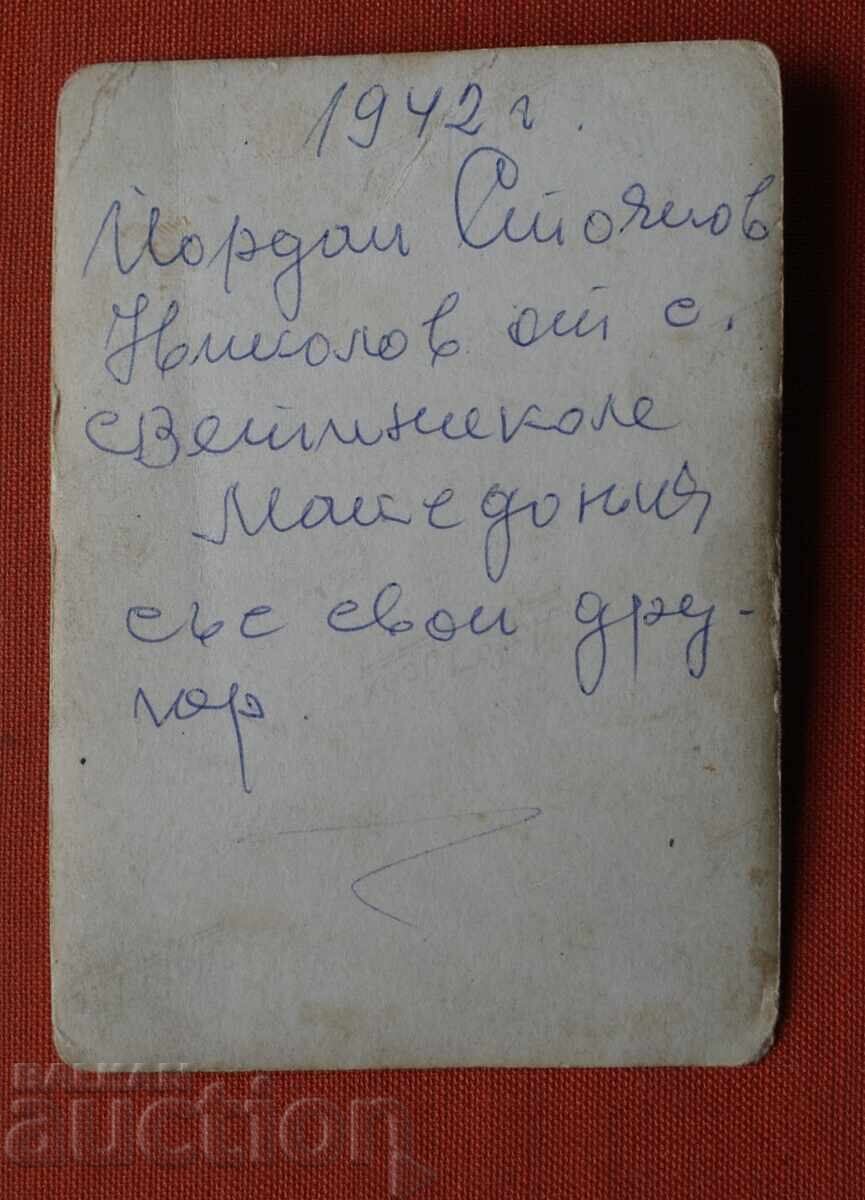 1942 г.
Йордан Стоянов
Николов от с.
свети николе
Македония
със свои дру-
гар
BALKAN
auction